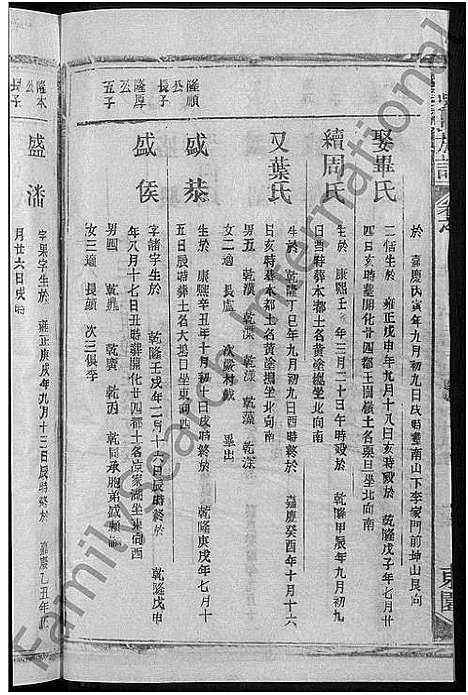 於 嘉慶丙寅年九月初九日戌時塟南山下李家門前坤山艮向
娶畢氏
二恒生於 雍正戊申年九月十八日亥時歿於 乾隆戊子年七月廿
四日亥時塟開化廿四都王閒嶺土名東旦坐北向南
續周氏
生於 康熙壬 年三月二十日午時歿於 乾隆甲辰年九月初九
日酉時葬本都土名黄塗塭坐北向南
又葉氏
生於 乾隆丁巳年九月初九日酉時終於 嘉慶癸酉年十月十六
日亥時葬本都土名黄塗塭坐北向南
男五 乾漢 乾 乾 乾藻 乾深
女二適 長盧 次嚴村戴 畢出
隆順公長子
盛恭
生於 康熙辛丑年十月初十日戌時終於 乾隆庚戌年七月十
五日辰時葬土名大基口坐東向西
隆厚公五子
盛侯
字諸字生於 乾隆壬戌年二月十六日辰時終於 乾隆戊申
年八月十七日丑時塟開化廿四都土名凉家湖坐東向西
男四 乾 乾 乾 乾同承胞弟盛
女三適 長顧 次三俱李
隆本公長子
盛潘
字果字生於 雍正庚戌年九月十三日辰時終於 嘉慶乙丑年正
月廿六日戌時
東園
Family Search International